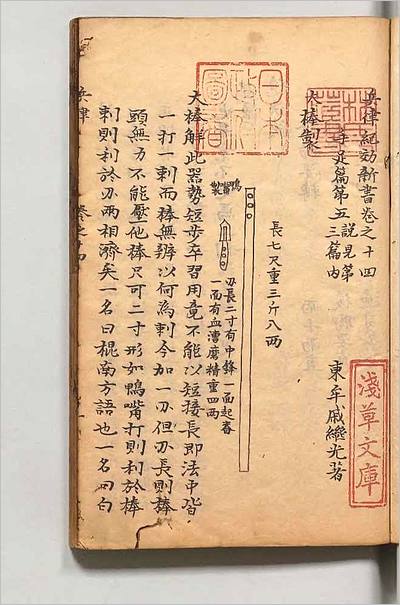 兵律紀効新書巻之十四
手足篇第五
説見第
三篇内
東牟戚繼光著
淺草文庫
大棒製
長七尺重三斤八两
日本政府圖書
鴨嘴製
刃長二寸有中鋒一面起脊
一面有血漕磨精重四两
大棒解此器勢短步卒習用竟不能以短接長即法中皆
一打一刺而棒無辨以何為刺今加一刃但刃長則棒
頭無力不能壓他棒只可二寸形如鴨嘴打則利於棒
刺則利於刃两相濟矣一名曰棍南方語也一名曰白
兵律 巻之十四 一